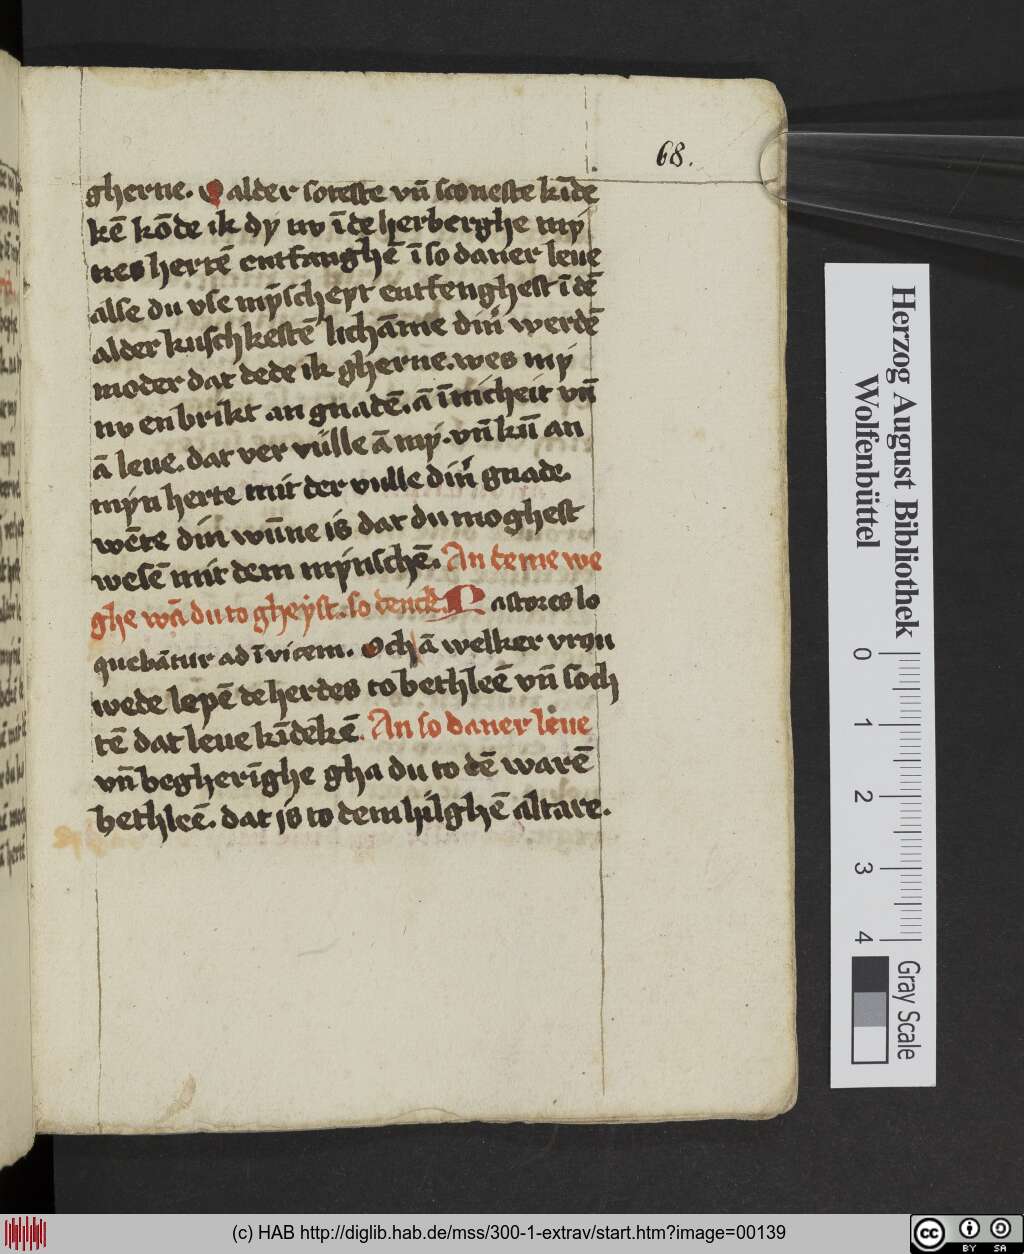 68.
gherne. O alder soteste vn̄ sconeste kīde
kē kōde ik dy nv ī de herberghe mȳ
nes hertē entfanghē ī so daner leue
alse du vse mȳschept entfenghest ī dē
alder kuschkestē lichāme diner werdē
moder dat dede ik gherne. wes my
nv en brikt an gnadē. ā īnicheit vn̄
ā leue. dat ver vülle ā my. vn̄ kū an
myn herte mit der vulle diner gnade.
wēte din wūne is dat du moghest
wesē mit dem mynschē. An deme we
ghe wā du to gheyst. so dencke. Pastores lo
quebātur ad īvicem. Och ā welker vrou
wede lepē de herdes to bethleē vn̄ soch
tē dat leue kīdekē. An so daner leue
vn̄ begherīghe gha du to dē warē
bethleē. dat is to dem hilghē altare.
Herzog August Bibliothek
Wolfenbüttel
0 1 2 3 4
Gray Scale
(c) HAB http://diglib.hab.de/mss/300-1-extrav/start.htm?image=00139
cc BY SA